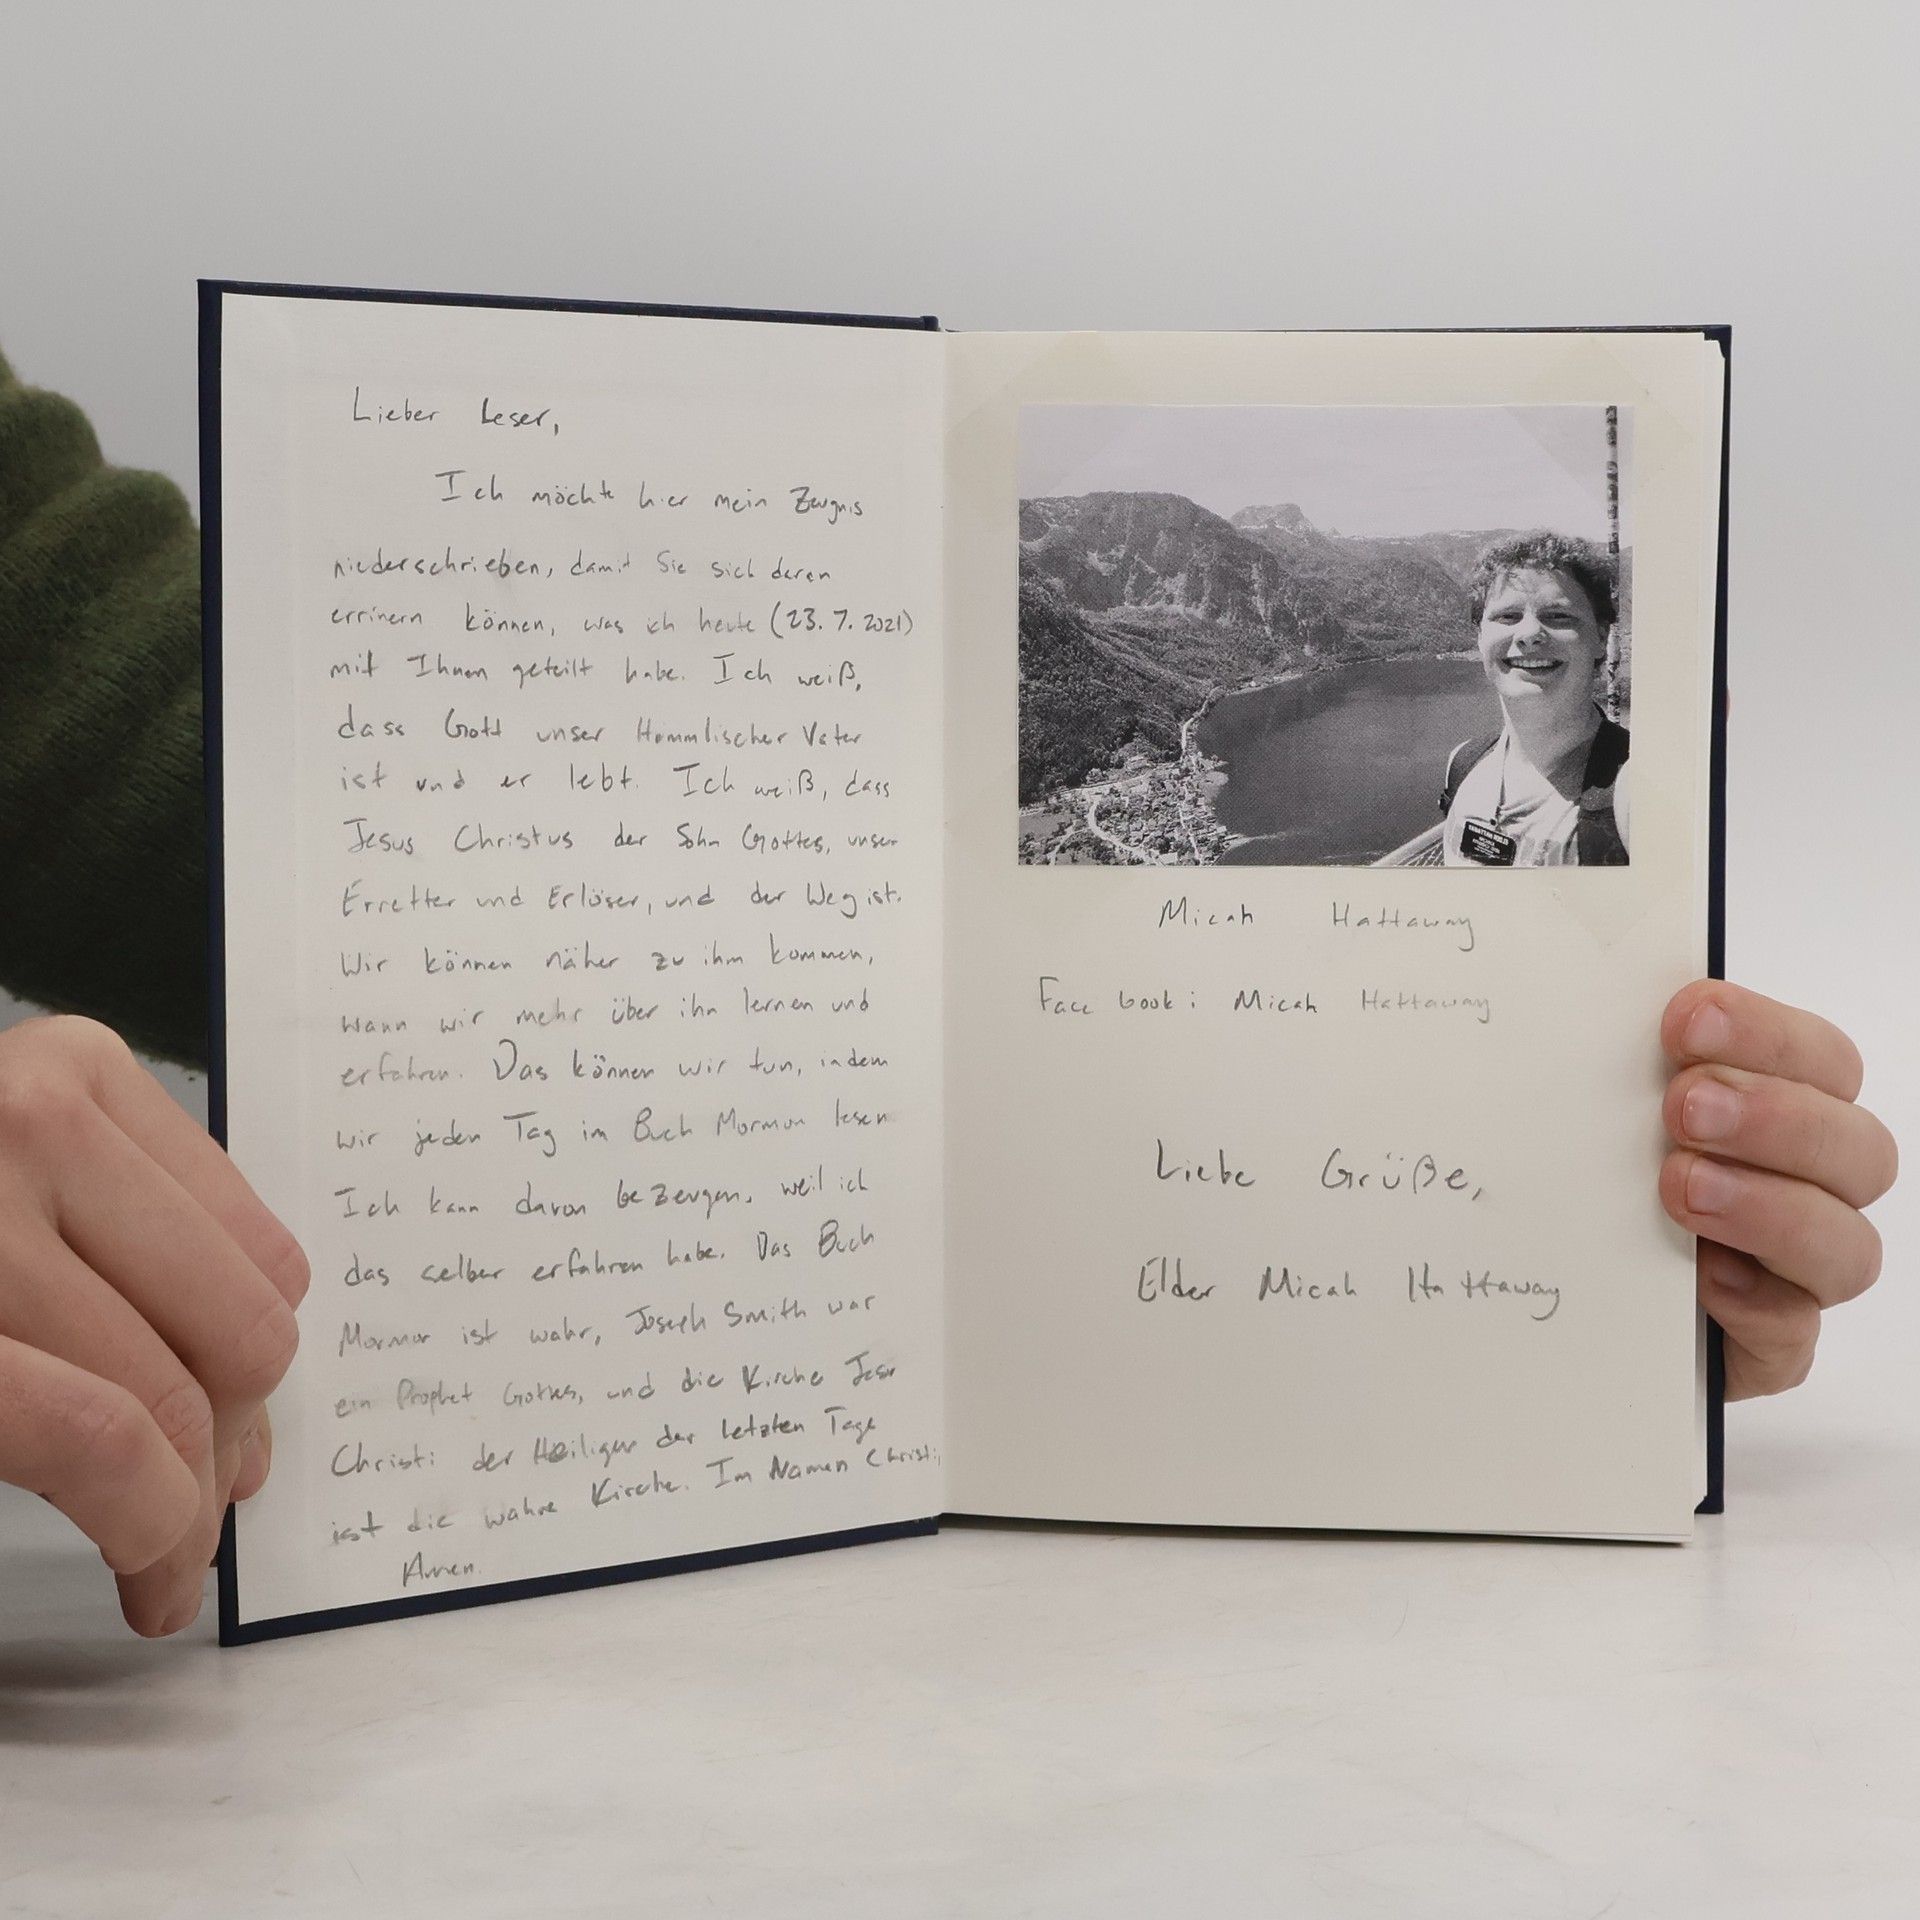 Lieber Leser,
Ich möchte hier mein Zeugnis
niederschrieben, damit Sie sich daran
errinern können, was ich heute (23. 7. 2021)
mit Ihnen geteilt habe. Ich weiß,
dass Gott unser Himmlischer Vater
ist und er lebt. Ich weiß, dass
Jesus Christus der Sohn Gottes, unser
Erretter und Erlöser, und der Weg ist.
Wir können näher zu ihm kommen,
wann wir mehr über ihn lernen und
erfahren. Das können wir tun, indem
wir jeden Tag im Buch Mormon lesen
Ich kann davon bezeugen, weil ich
das selber erfahren habe. Das Buch
Mormon ist wahr, Joseph Smith war
ein Prophet Gottes, und die Kirche Jesu
Christi der Heiligen der letzten Tage
ist die wahre Kirche. Im Namen Christi,
Amen.
Micah Hattaway
Facebook: Micah Hattaway
Liebe Grüße,
Elder Micah Hattaway